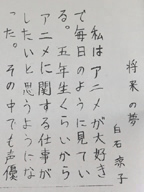 将来の夢
白石涼子
私はアニメが大好き
で毎日のように見てい
る。五年生くらいから
アニメに関する仕事が
したいと思うようにな
った。その中でも声優